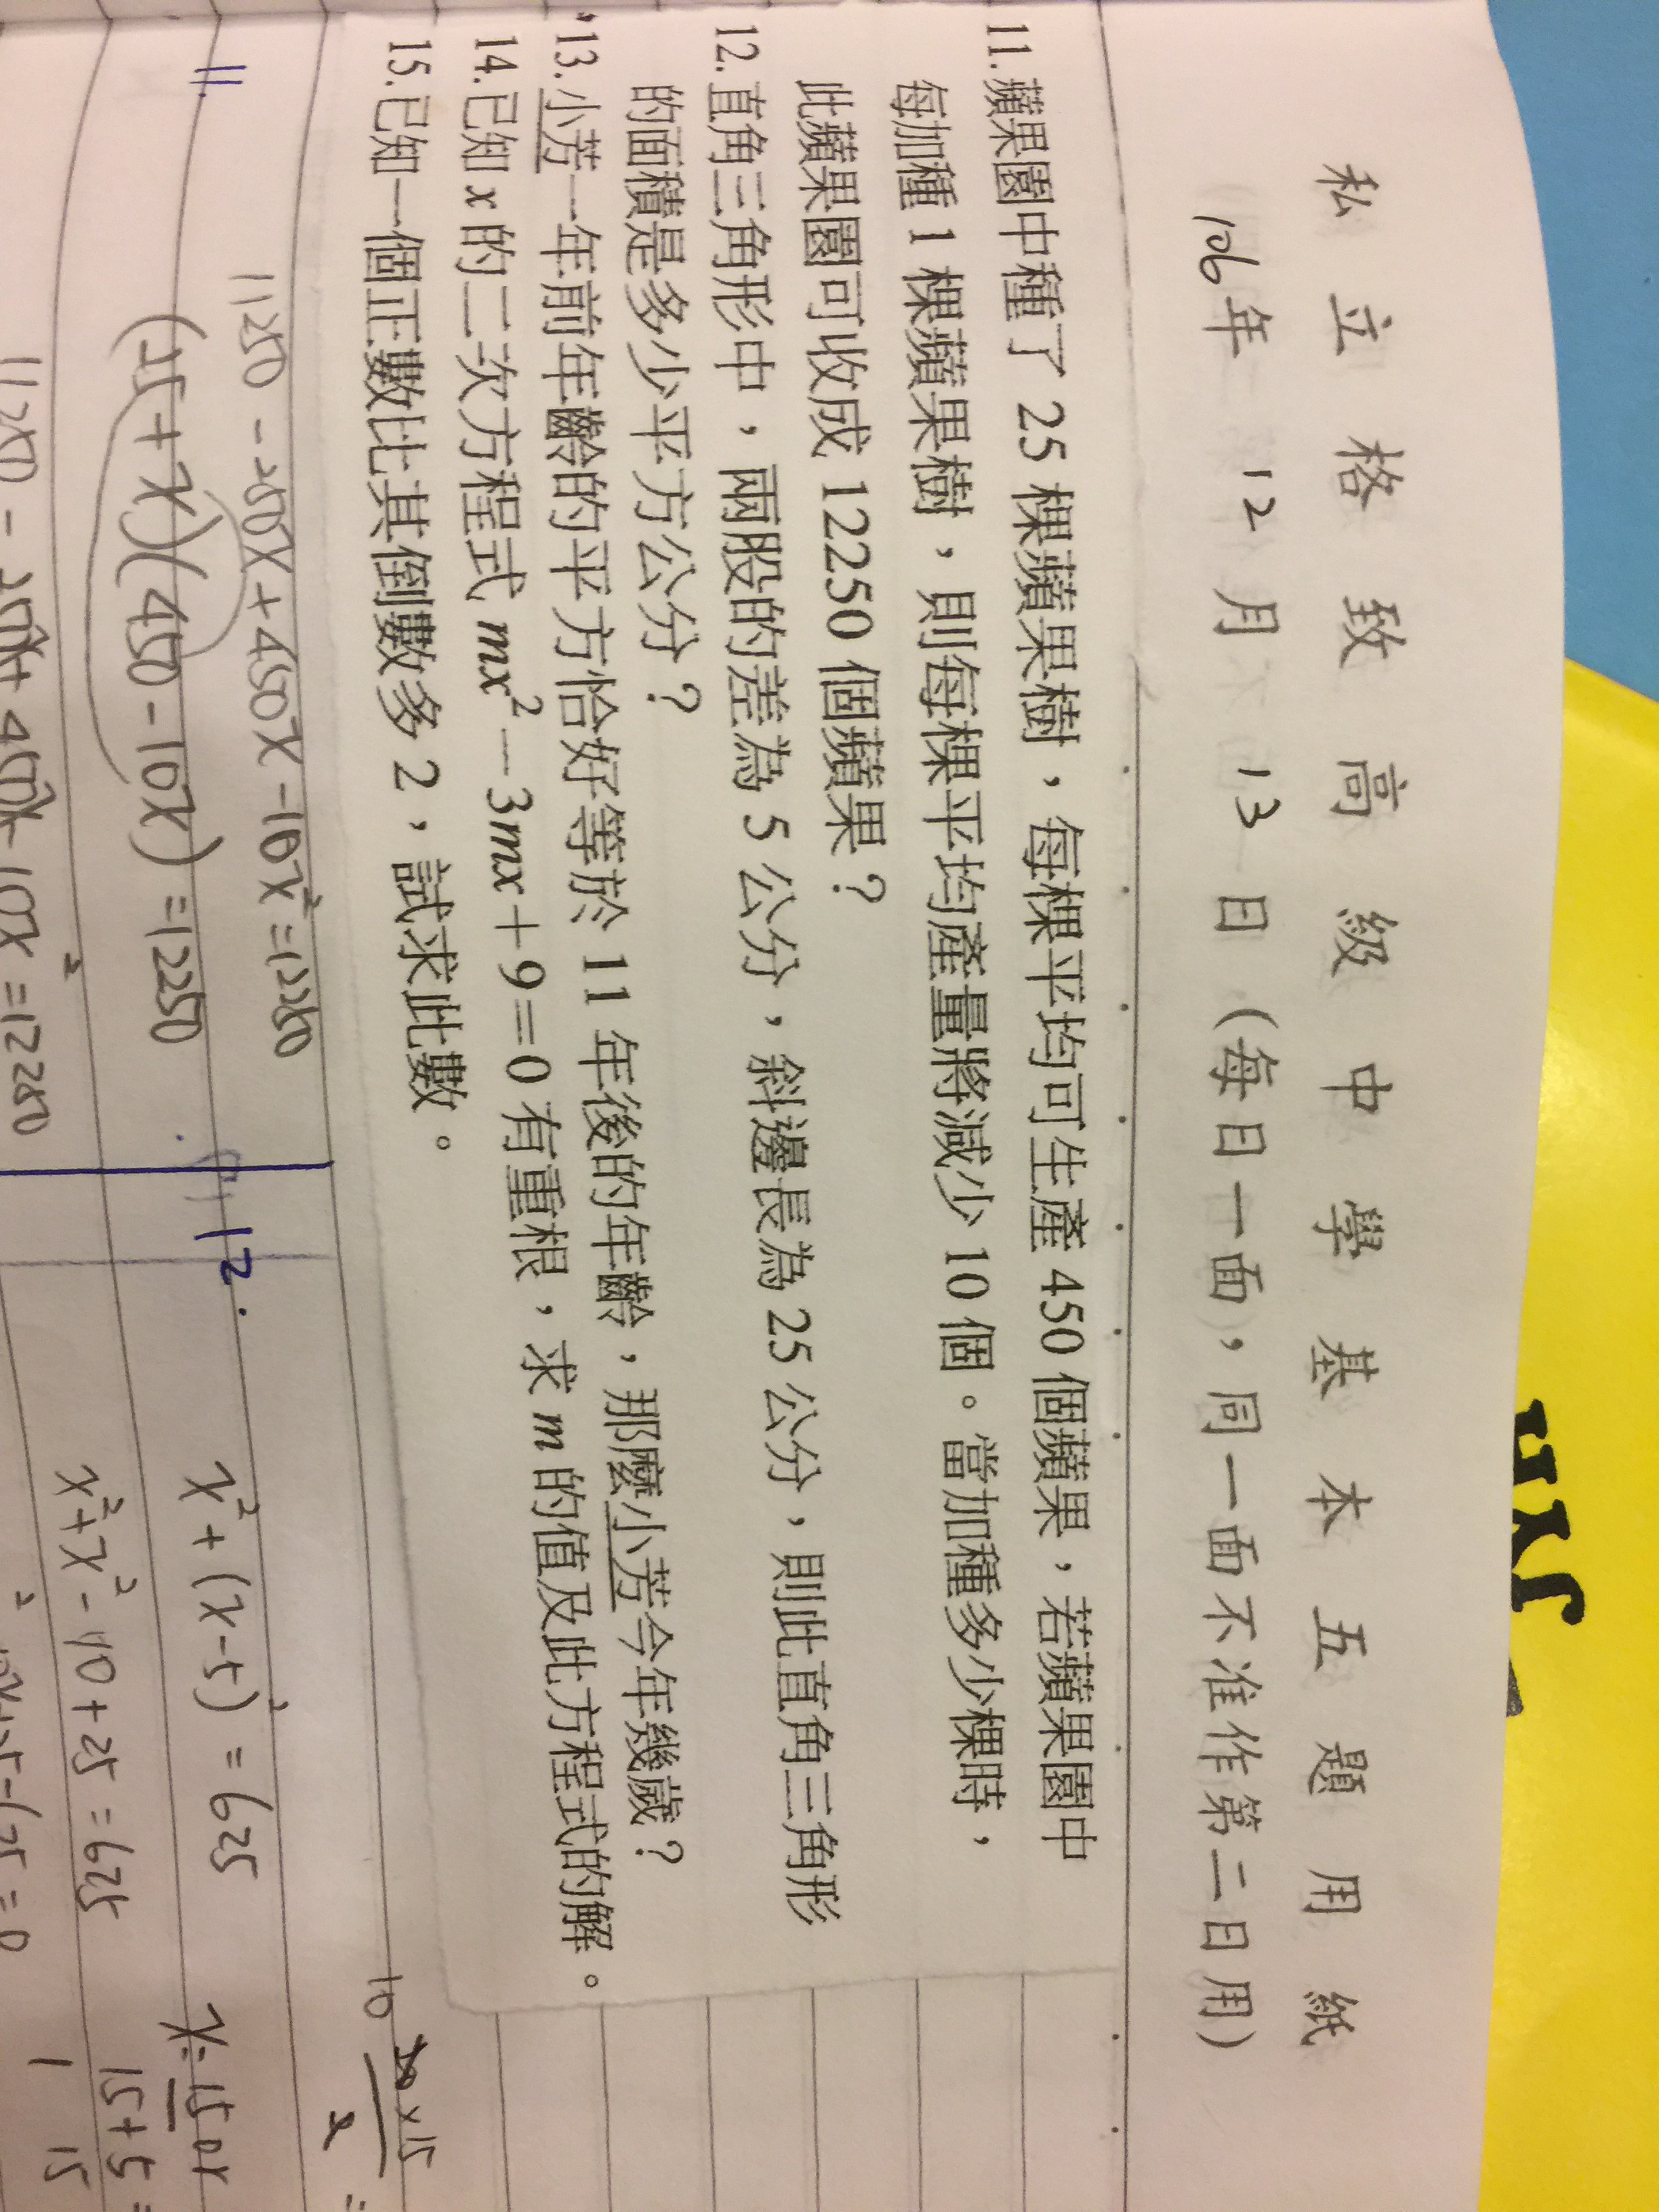 私立格致高級中學基本五題用紙
106年12月13日(每日一面,同一面不准作第二日用)
11.蘋果園中種了 25 棵蘋果樹,每棵平均可生產 450 個蘋果,若蘋果園中
每加種 1 棵蘋果樹,則每棵平均產量將減少 10 個。當加種多少棵時,
此蘋果園可收成 12250 個蘋果?
12.直角三角形中,兩股的差為 5 公分,斜邊長為 25 公分,則此直角三角形
的面積是多少平方公分?
13.小芳一年前年齡的平方恰好等於 11 年後的年齡,那麼小芳今年幾歲?
14.已知 x 的二次方程式 mx²-3mx+9=0 有重根,求 m 的值及此方程式的解。
15.已知一個正數比其倒數多 2,試求此數。
11.
11250-250x+450x-10x²=12250
(25+x)(450-10x)=12250
12.
x²+(x-5)²=625
15+5